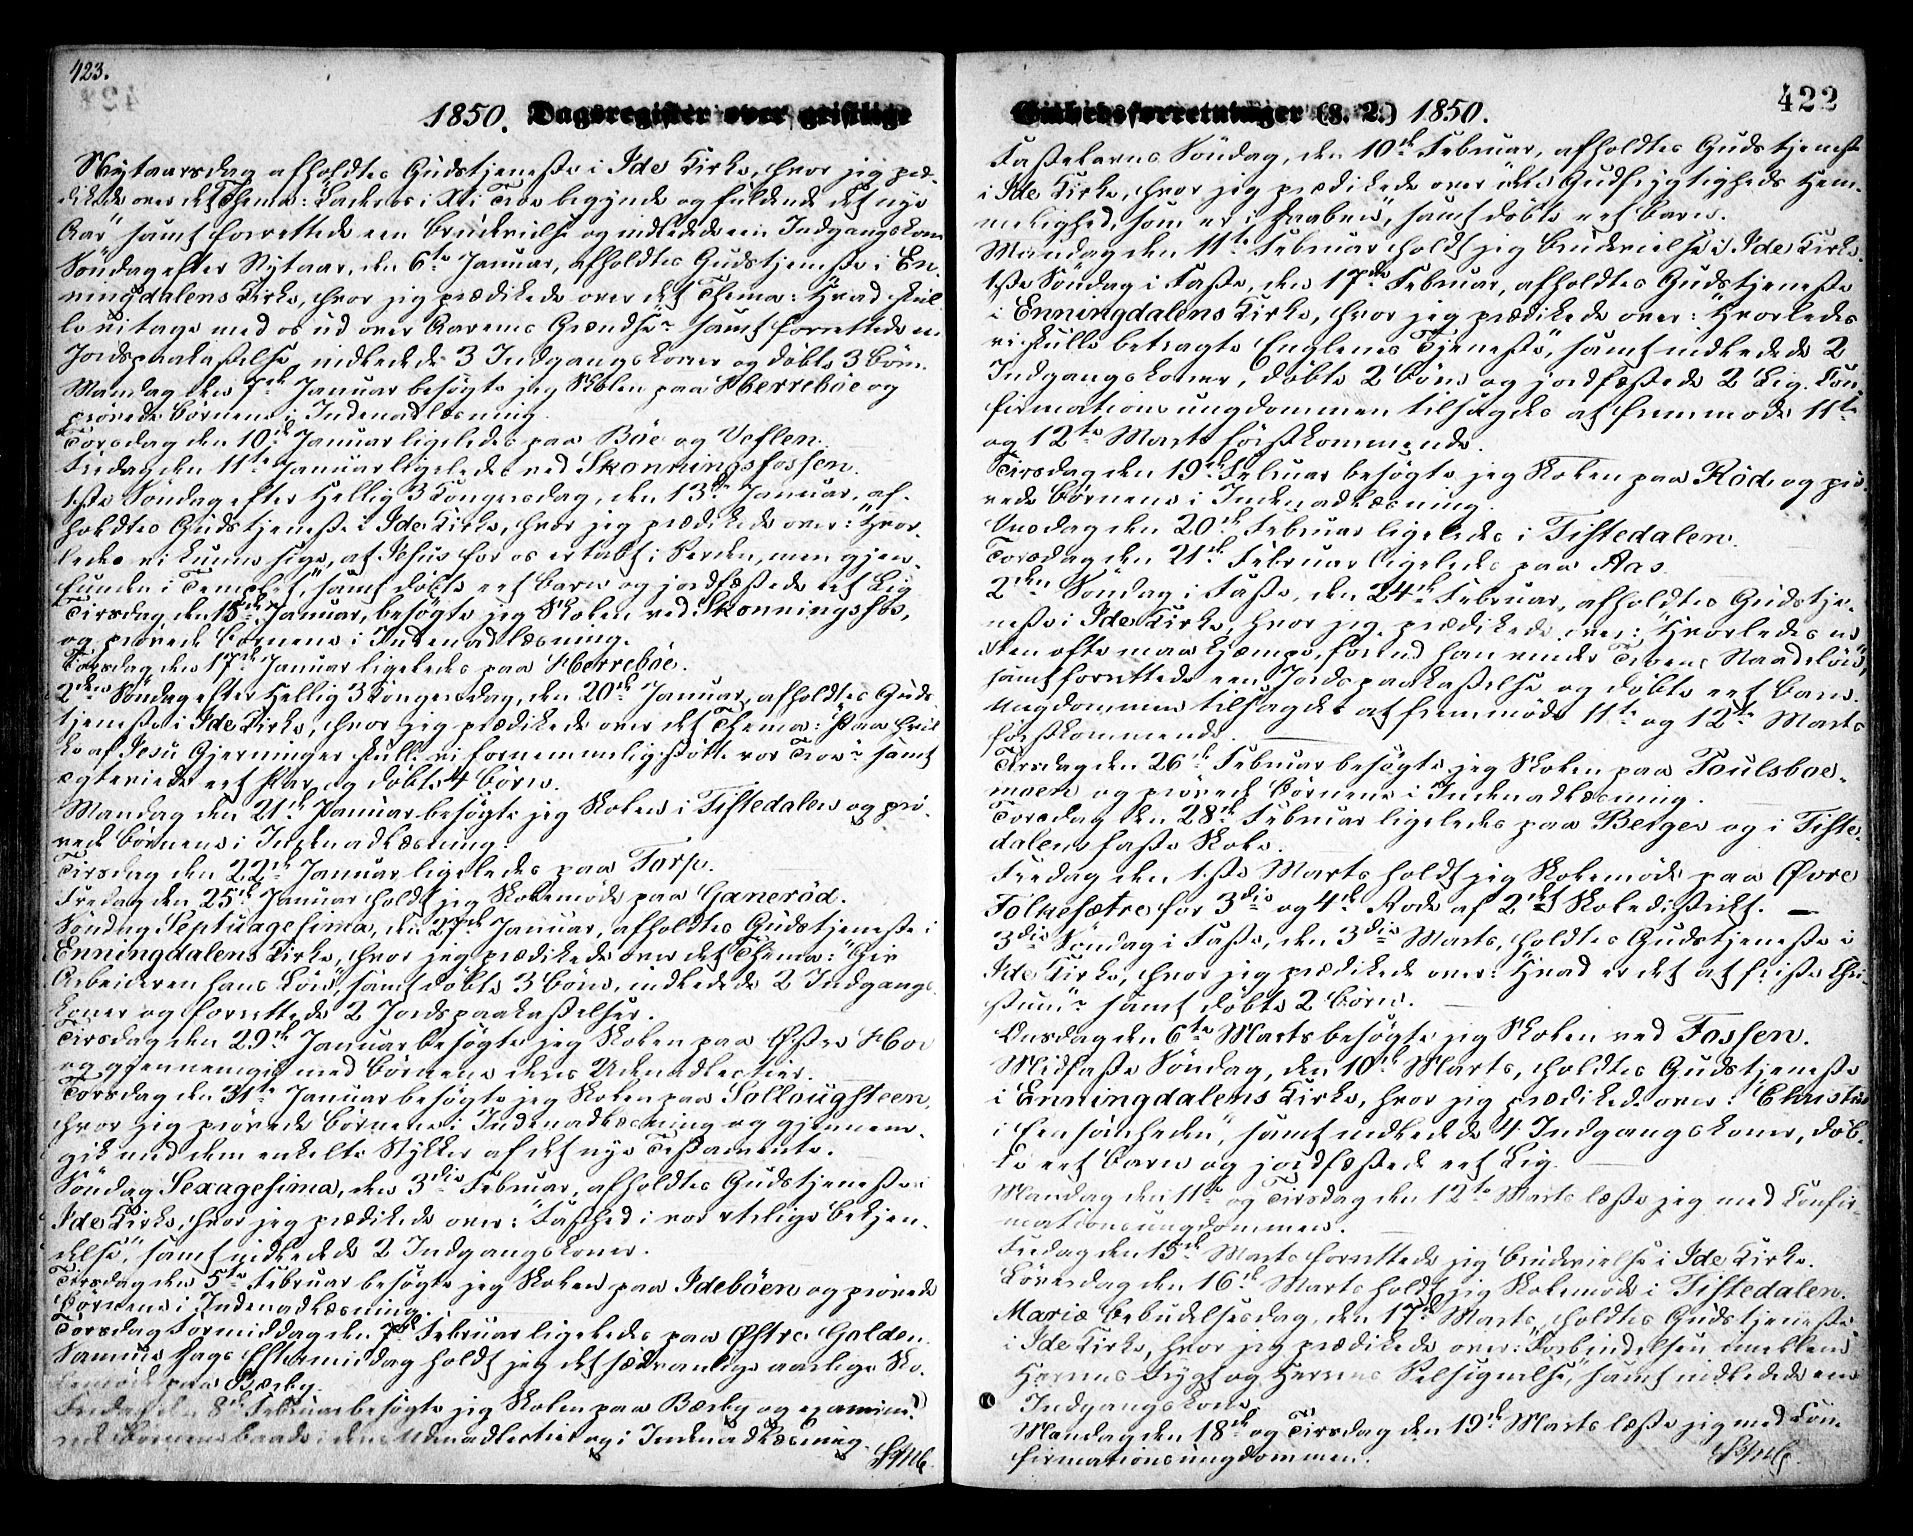 423.
1850. Dagsregister over geistlige
Nytaarsdag afholdtes Gudstjeneste i Ide Kirke, hvor jeg præ-
dikede over det Thema: i Tro begynde og fuldende det nye
Aar" samt forrettede een Brudevielse og indledede een Indgangskone
Søndag efter Nytaar, den 6te Januar, afholdtes Gudstjeneste i En-
ningdalens Kirke, hvor jeg prædikede over det Thema: Hvad skul-
le vi tage med os ud over Aarenes Grændse" samt forrettede en
Jordspaakastelse, indledede 3 Indgangskoner og døbte 3 Børn.
Mandag den 7de Januar besøgte jeg Skolen paa Herrebøe og
prøvede Børnene i Indenadlæsning.
Torsdag den 10de Januar ligeledes paa Böe og Veflen.
Fredag den 11te Januar ligeledes ved Skonningsfossen.
1ste Søndag efter Hellig 3 Kongersdag, den 13de Januar, af-
holdtes Gudstjeneste i Ide Kirke, hvor jeg prædikede over: "Hvor-
ledes vi kunne sige, at Jesus for os er tabt i Verden, men gjen-
funden i Templet," samt døbte eet Barn og jordfæstede eet Lig
Tirsdag den 15de Januar, besøgte jeg Skolen ved Skonningsfos,
og prøvede Børnene i Indenadlæsning.
Torsdag den 17de Januar ligeledes paa Herrebøe.
2den Søndag efter Hellig 3 Kongersdag, den 20de Januar, afholdtes Guds-
tjeneste i Ide Kirke, hvor jeg prædikede over det Thema: "Paa hvil-
ke af Jesu Gjerninger skulle vi fornemmelig støtte vor Tro" samt
ægteviede eet Par og døbte 4 Børn.
Mandag den 21de Januar besøgte jeg Skolen i Tistedalen og prø-
vede Børnene i Indenadlæsning.
Tirsdag den 22de Januar ligeledes paa Torp.
Fredag den 25de Januar holdt jeg Skolemøde paa Ganeröd.
Søndag Septuagesima, den 27de Januar, afholdtes Gudstjeneste i
Enningdalens Kirke, hvor jeg prædikede over det Thema: "Giv
Arbeideren hans Løn", samt døbte 3 Børn, indledede 2 Indgangs-
koner og forrettede 2 Jordspaakastelser.
Tirsdag den 29de Januar besøgte jeg Skolen paa Østre Hov
og gjennemgik med Børnene deres Udenadlectier.
Torsdag den 31te Januar besøgte jeg Skolen paa Solloughsteen,
hvor jeg prøvede Børnene i Indenadlæsning og gjennem-
gik med dem enkelte Stykker af det nye Testamente.
Søndag Sexagesima, den 3die Februar, afholdtes Gudstjeneste i
Ide Kirke, hvor jeg prædikede over: "Fasthed i vor Bekjen-
delse", samt indledede 2 Indgangskoner.
Tirsdag den 5te Februar besøgte jeg Skolen paa Idebøen og prøvede
Børnene i Indenadlæsning.
Torsdag Formiddag den 7de Februar ligeledes paa Østre Galden.
Samme Dags Eftermiddag holdt jeg det sædvanlige aarlige Sko-
lemøde paa Bærby.
Fredag den 8de Februar besøgte jeg Skolen paa Bærby og examine-
rede Børnene baade i deres Udenadlectier og i Indenadlæsning.
422
Embedsforretninger (§. 2.) 1850.
Fastelavns Søndag, den 10de Februar, afholdtes Gudstjeneste
i Ide Kirke, hvor jeg prædikede over Gudfrygtigheds Hem-
melighed, som er i Daaben", samt døbte eet Barn.
Mandag den 11te Februar holdt jeg Brudevielse i Ide Kirke.
1ste Søndag i Faste, den 17de Februar, afholdtes Gudstjeneste
i Enningdalens Kirke, hvor jeg prædikede over: "Hvorledes
vi skulle betragte Englenes Tjeneste", samt indledede 2
Indgangskoner, døbte 2 Børn og jordfæstede 2 Lig. Con-
firmationsungdommen tilsagdes at fremmøde 11te
og 12te Marts førstkommende.
Tirsdag den 19de Februar besøgte jeg Skolen paa Röd og prø-
vede Børnene i Indenadlæsning.
Onsdag den 20de Februar ligeledes i Tistedalen.
Torsdag den 21de Februar ligeledes paa Aas.
2den Søndag i Faste, den 24de Februar, afholdtes Gudstje-
neste i Ide Kirke, hvor jeg prædikede over: "Hvorledes
ofte maa kjæmpe, førend han vinder Troens Naadeløn",
samt forrettede een Jordspaakastelse og døbte eet Barn.
Ungdommen tilsagdes at fremmøde 11te og 12te Marts
førstkommende.
Tirsdag den 26de Februar besøgte jeg Skolen paa Poulsboe-
moen og prøvede Børnene i Indenadlæsning.
Torsdag den 28de Februar ligeledes paa Berger og i Tiste-
dalens faste Skole.
Fredag den 1ste Marts holdt jeg Skolemøde paa Øvre
Folkesætre for 3die og 4de Rode af 2det Skoledistrikt.
3die Søndag i Faste, den 3die Marts, holdtes Gudstjeneste i
Ide Kirke, hvor jeg prædikede over: "Hvad er det at friste Chri-
stum" samt døbte 2 Børn.
Onsdag den 6te Marts besøgte jeg Skolen ved Fossen.
Midfaste Søndag, den 10de Marts, holdtes Gudstjeneste
i Enningdalens Kirke, hvor jeg prædikede over: "Christus
i Eensomheden", samt indledede 4 Indgangskoner, døb-
te eet Barn og jordfæstede eet Lig.
Mandag den 11te og Tirsdag den 12te Marts læste jeg med Confir-
mationsungdommen.
Fredag den 15de Marts forrettede jeg Brudevielse i Ide Kirke.
Løverdag den 16de Marts holdt jeg Skolemøde i Tistedalen.
Mariæ Bebudelsesdag, den 17de Marts, holdtes Gudstjeneste
i Ide Kirke, hvor jeg prædikede over: "Forbindelsen imellem
Herrens Frygt og Herrens Velsignelse", samt indledede een
Indgangskone.
Mandag den 18de og Tirsdag den 19de Marts læste jeg med Con-
firmationsungdommen.